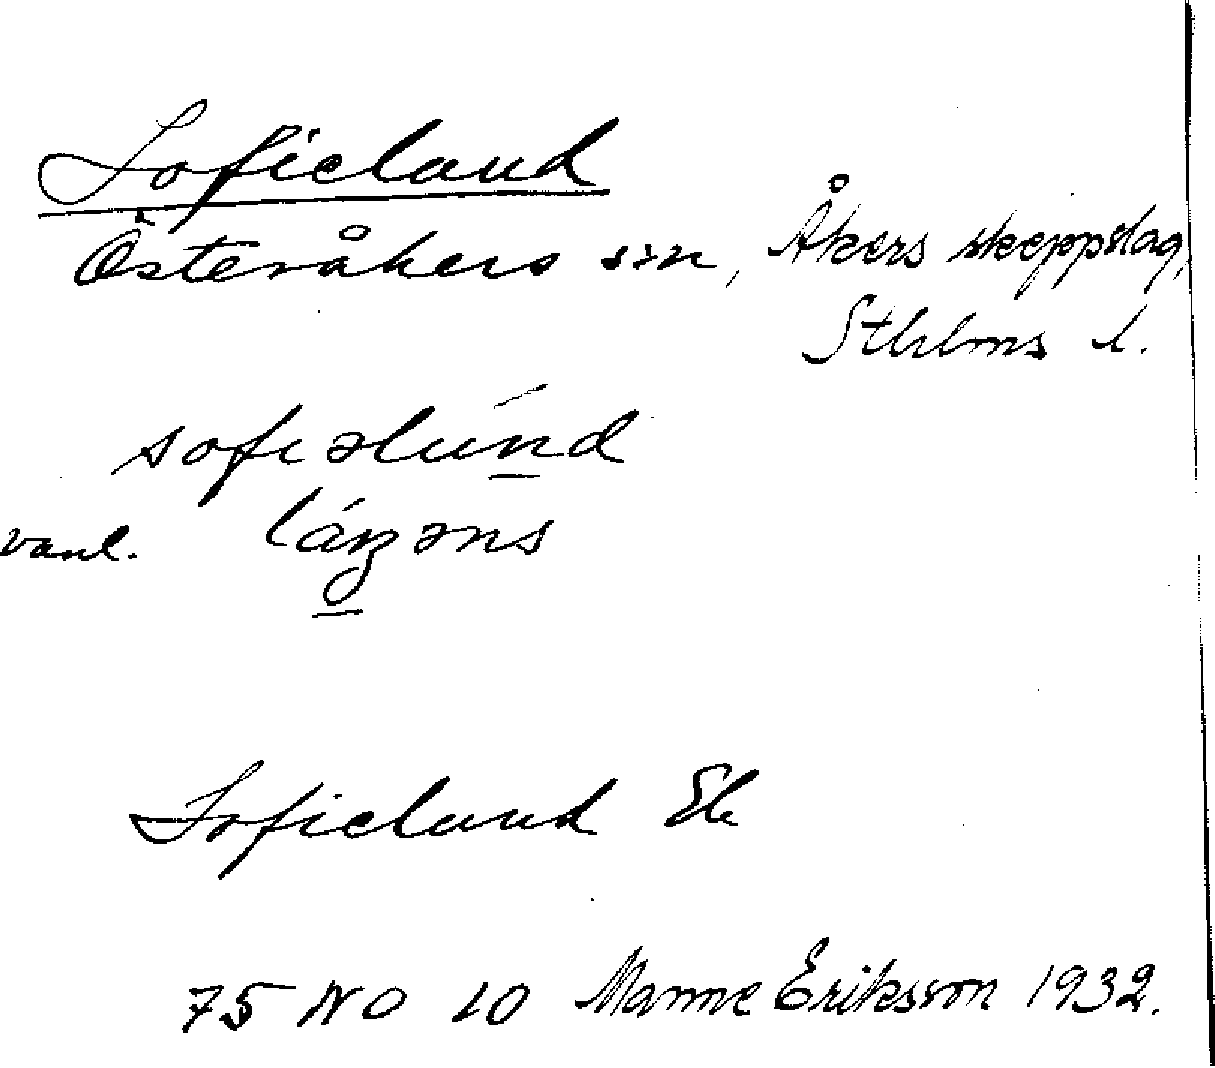 Sofielund
Österåkers sn, Åkers skeppslag,
Sthlms l.
sofiəlúnd
vanl. lázəns
Sofielund Ek
75 NO 10 Manne Eriksson 1932.